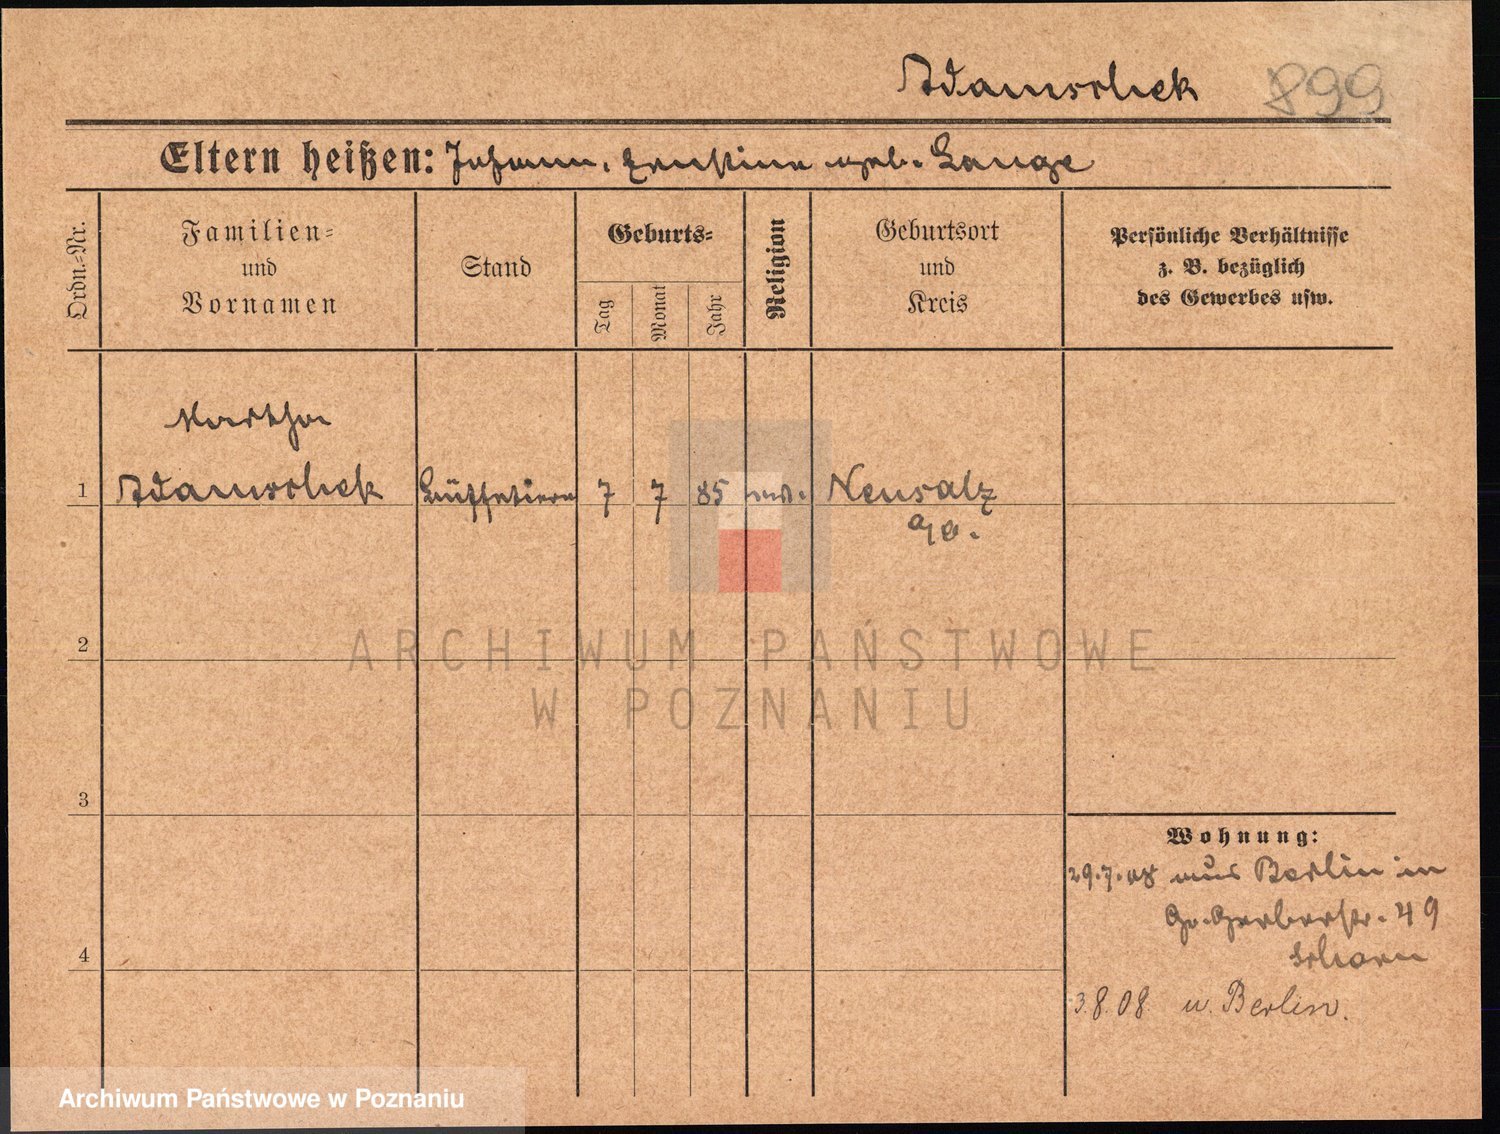 Adamschek 899
Eltern heißen: Johann, Ernstine geb. Lange
Ordn.-Nr.
Familien-
und
Vornamen
Stand
Geburts-
Tag
Monat
Jahr
Religion
Geburtsort
und
Kreis
Persönliche Verhältnisse
z. B. bezüglich
des Gewerbes usw.
Martha
1 Adamschek Büffetiere 7 7 85 Neusalz
a/O.
2
3
4
Wohnung:
29.7.08 aus Berlin in
Gr. Gerberstr. 49
3.8.08 n. Berlin.
ARCHIWUM PAŃSTWOWE
W POZNANIU
Archiwum Państwowe w Poznaniu